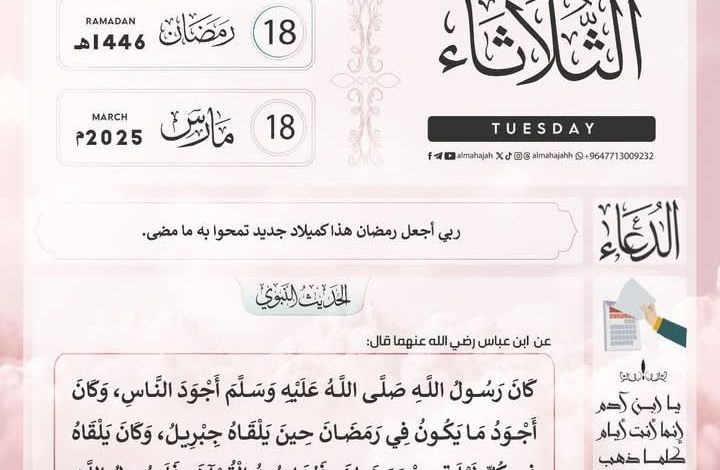 الثُّلَاثَاء
TUESDAY
almahajah almahajahh +9647713009232
RAMADAN
18 رَمَضَان 1446هـ
MARCH
18 مَارِس 2025م
الدُعَاء
ربي أجعل رمضان هذا كميلاد جديد تمحوا به ما مضى.
الحَدِيثُ النَّبَوِي
عن ابن عباس رضي الله عنهما قال:
كَانَ رَسُولُ اللَّهِ صَلَّى اللَّهُ عَلَيْهِ وَسَلَّمَ أَجْوَدَ النَّاسِ، وَكَانَ
أَجْوَدُ مَا يَكُونُ فِي رَمَضَانَ حِينَ يَلْقَاهُ جِبْرِيلُ، وَكَانَ يَلْقَاهُ
يا ابن آدم
إنما أنت أيام
كلما ذهب